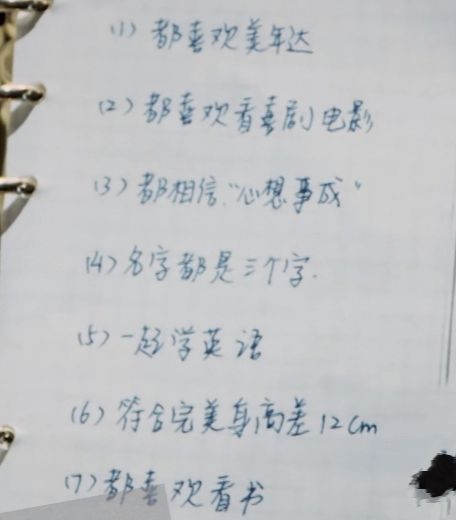 (1) 都喜欢美年达
(2) 都喜欢看喜剧电影
(3) 都相信"心想事成"
(4) 名字都是三个字.
(5) 一起学英语
(6) 符合完美身高差12cm
(7) 都喜欢看书